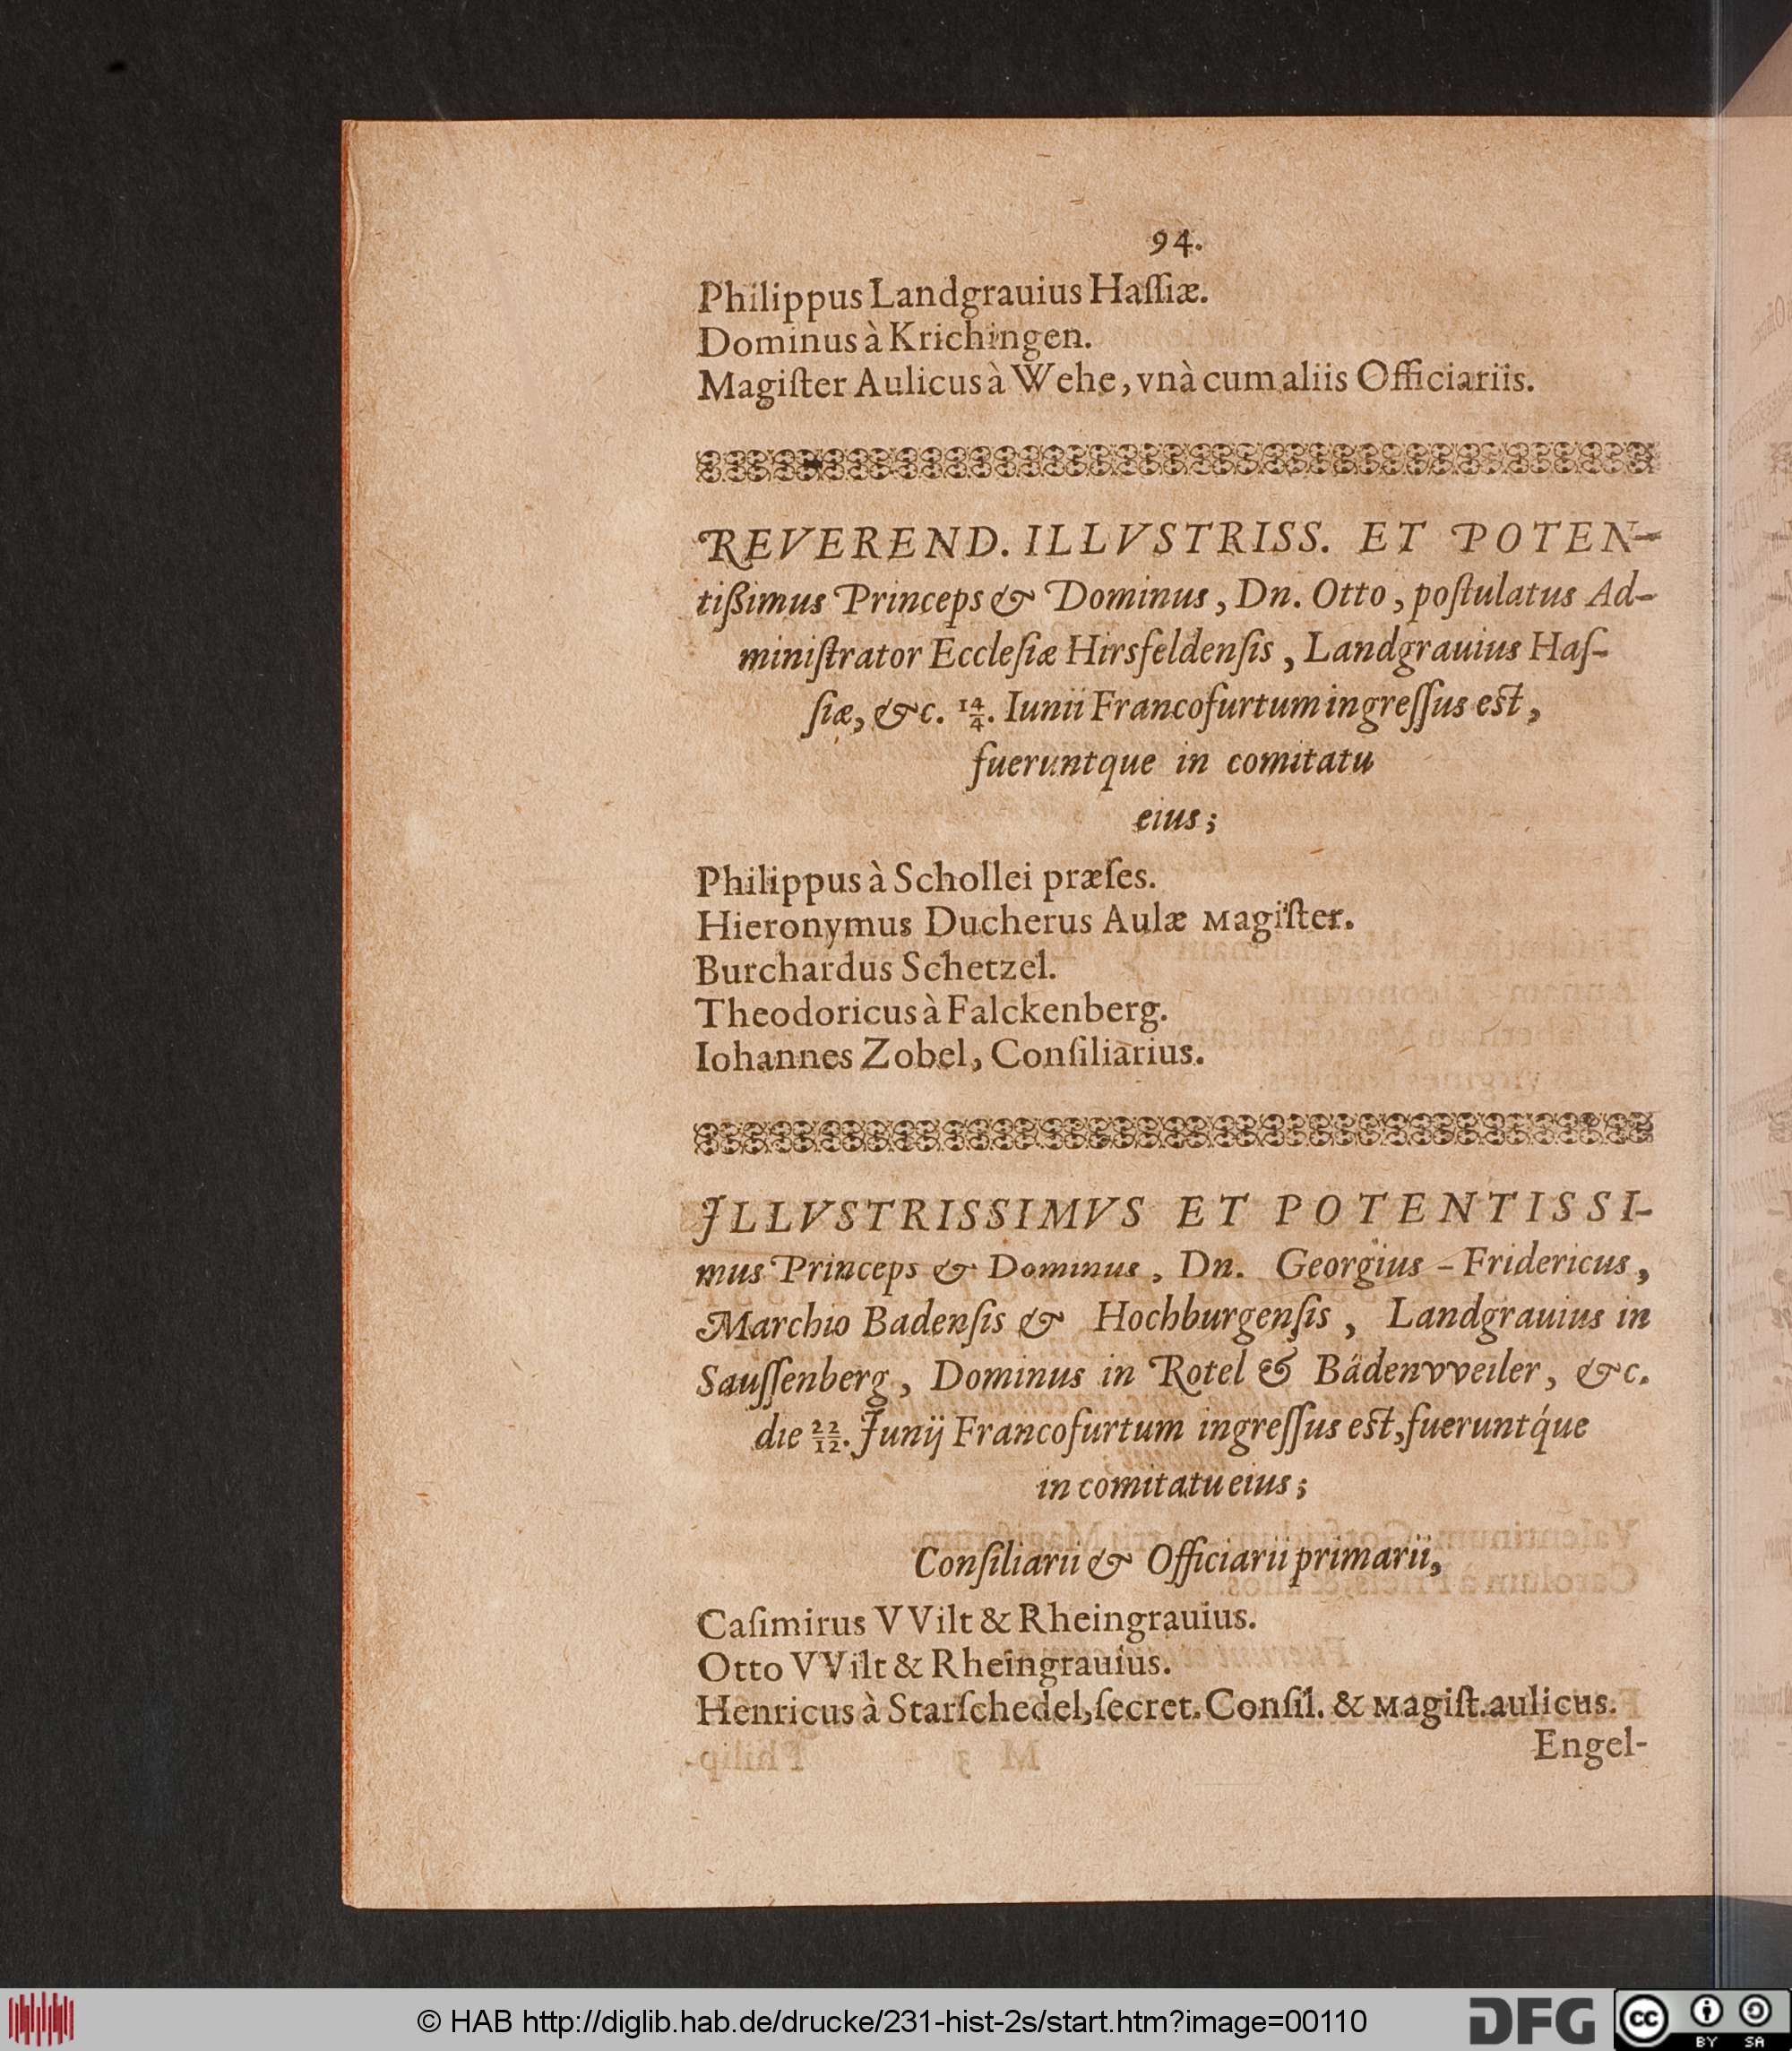 94.
Philippus Landgrauius Haſſiæ.
Dominus à Krichingen.
Magiſter Aulicus à Wehe, vnà cum aliis Officiariis.
REVEREND. ILLVSTRISS. ET POTEN-
tißimus Princeps & Dominus, Dn. Otto, poſtulatus Ad-
miniſtrator Eccleſiæ Hirsfeldenſis, Landgrauius Haſ-
ſiæ, &c. 14/4. Iunii Francofurtum ingreſſus eſt,
fueruntque in comitatu
eius;
Philippus à Schollei præſes.
Hieronymus Ducherus Aulæ Magiſter.
Burchardus Schetzel.
Theodoricus à Falckenberg.
Iohannes Zobel, Conſiliarius.
ILLVSTRISSIMVS ET POTENTISSI-
mus Princeps & Dominus, Dn. Georgius-Fridericus,
Marchio Badenſis & Hochburgenſis, Landgrauius in
Sauſſenberg, Dominus in Rotel & Bädenvveiler, &c.
die 22/12. Junij Francofurtum ingreſſus eſt, fueruntq́ue
in comitatu eius;
Conſiliarii & Officiarii primarii,
Caſimirus VVilt & Rheingrauius.
Otto VVilt & Rheingrauius.
Henricus à Starſchedel, ſecret. Conſil. & Magiſt. aulicus.
Engel-
© HAB http://diglib.hab.de/drucke/231-hist-2s/start.htm?image=00110
DFG
cc BY SA